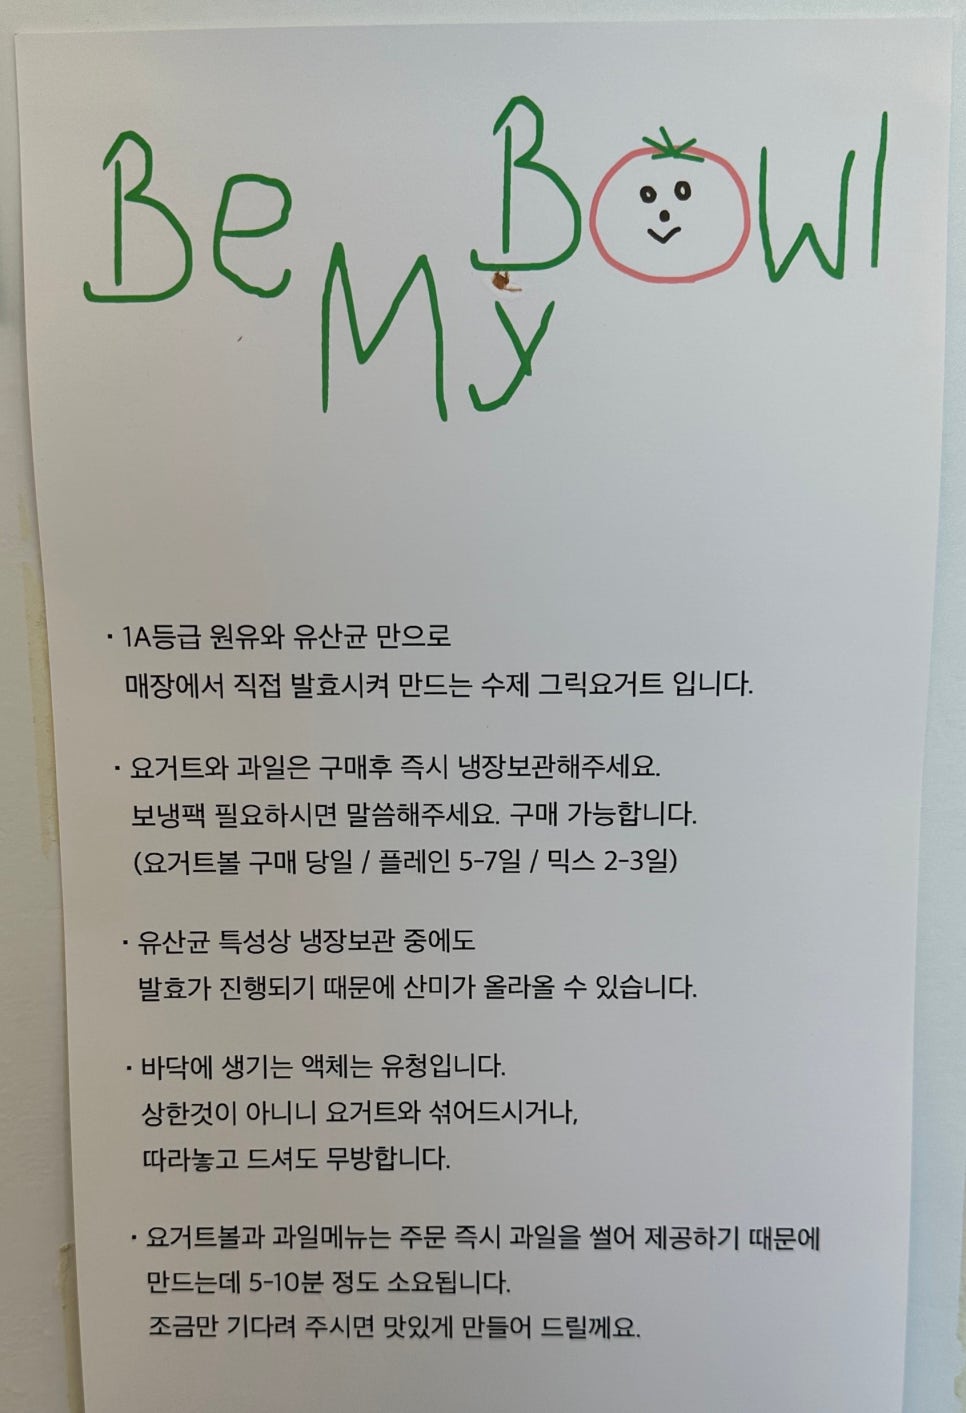 Be My Bowl
· 1A등급 원유와 유산균 만으로
매장에서 직접 발효시켜 만드는 수제 그릭요거트 입니다.
· 요거트와 과일은 구매후 즉시 냉장보관해주세요.
보냉팩 필요하시면 말씀해주세요. 구매 가능합니다.
(요거트볼 구매 당일 / 플레인 5-7일 / 믹스 2-3일)
· 유산균 특성상 냉장보관 중에도
발효가 진행되기 때문에 산미가 올라올 수 있습니다.
· 바닥에 생기는 액체는 유청입니다.
상한것이 아니니 요거트와 섞어드시거나,
따라놓고 드셔도 무방합니다.
· 요거트볼과 과일메뉴는 주문 즉시 과일을 썰어 제공하기 때문에
만드는데 5-10분 정도 소요됩니다.
조금만 기다려 주시면 맛있게 만들어 드릴께요.